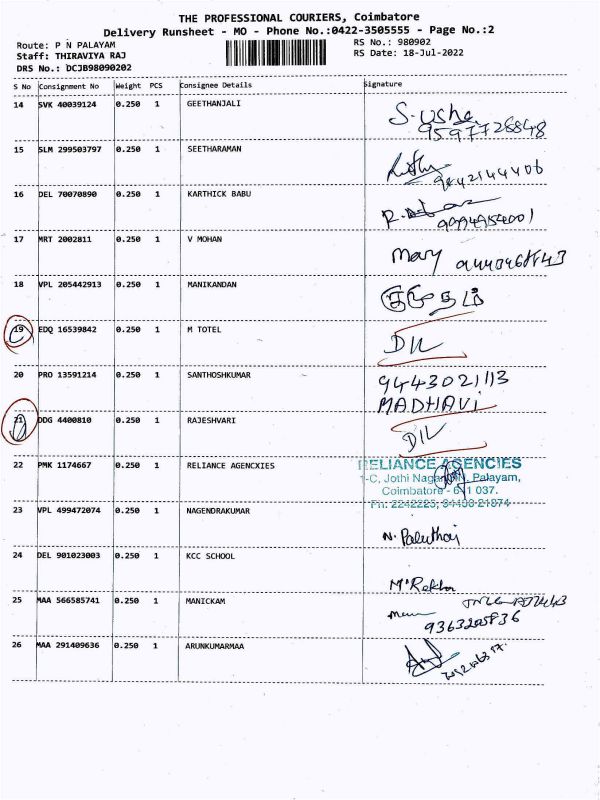 THE PROFESSIONAL COURIERS, Coimbatore
Delivery Runsheet - MO - Phone No.:0422-3505555 - Page No.:2
Route: P N PALAYAM
RS No.: 980902
Staff: THIRAVIYA RAJ
RS Date: 18-Jul-2022
DRS No.: DCJB98090202
S No Consignment No Weight PCS Consignee Details Signature
14 SVK 40039124 0.250 1 GEETHANJALI
S. Usha
9597728848
15 SLM 299503797 0.250 1 SEETHARAMAN
9842144406
16 DEL 70070890 0.250 1 KARTHICK BABU
17 MRT 2002811 0.250 1 V MOHAN
Mary
18 VPL 205442913 0.250 1 MANIKANDAN
19 EDQ 16539842 0.250 1 M TOTEL
D/L
20 PRO 13591214 0.250 1 SANTHOSHKUMAR
9443021113
MADHAVI
21 DDG 4400810 0.250 1 RAJESHVARI
D/L
22 PMK 1174667 0.250 1 RELIANCE AGENCXIES
RELIANCE AGENCIES
1-C, Jothi Nagar, Palayam,
Coimbatore - 641 037.
23 VPL 499472074 0.250 1 NAGENDRAKUMAR
24 DEL 901023003 0.250 1 KCC SCHOOL
M. Rekha
25 MAA 566585741 0.250 1 MANICKAM
26 MAA 291409636 0.250 1 ARUNKUMARMAA